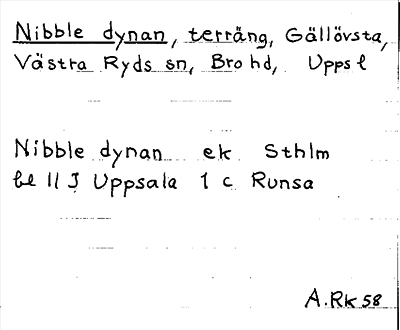 Nibble dynan, terräng, Gällövsta,
Västra Ryds sn, Bro hd, Upps l
Nibble dynan ek Sthlm
bl 11 I Uppsala 1 c Runsa
A. Rk 58